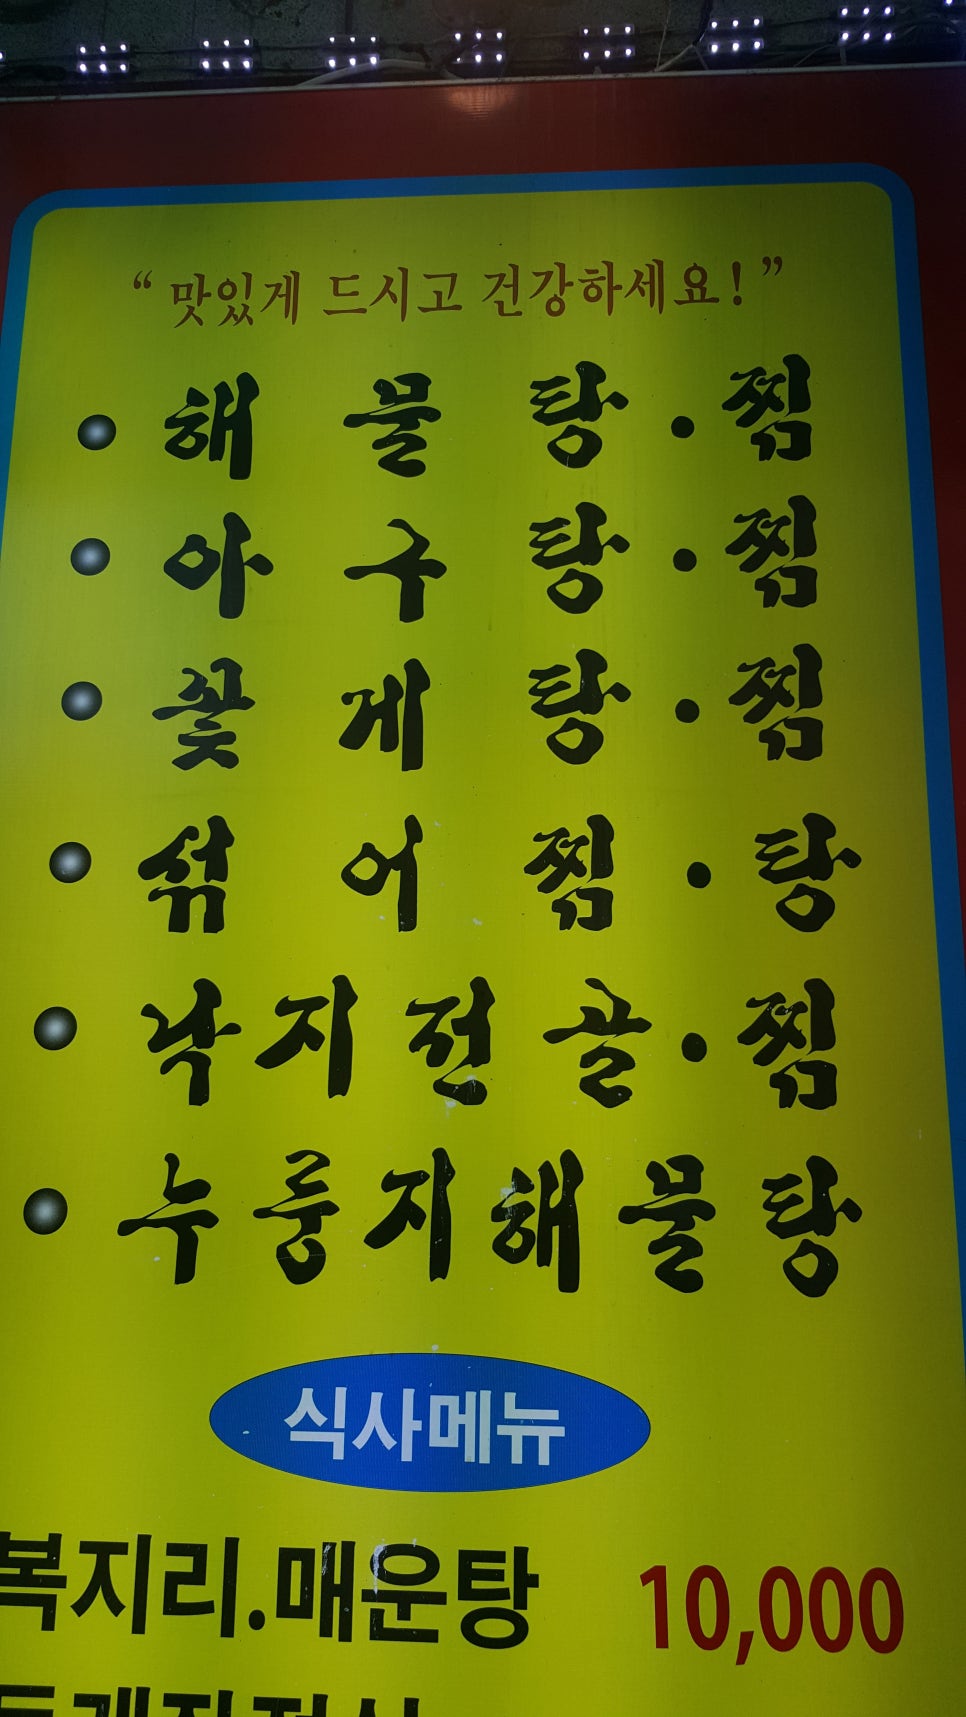 “맛있게 드시고 건강하세요!”
● 해물탕·찜
● 아구탕·찜
● 꽃게탕·찜
● 섞어찜·탕
● 낙지전골·찜
● 누룽지해물탕
식사메뉴
복지리.매운탕 10,000